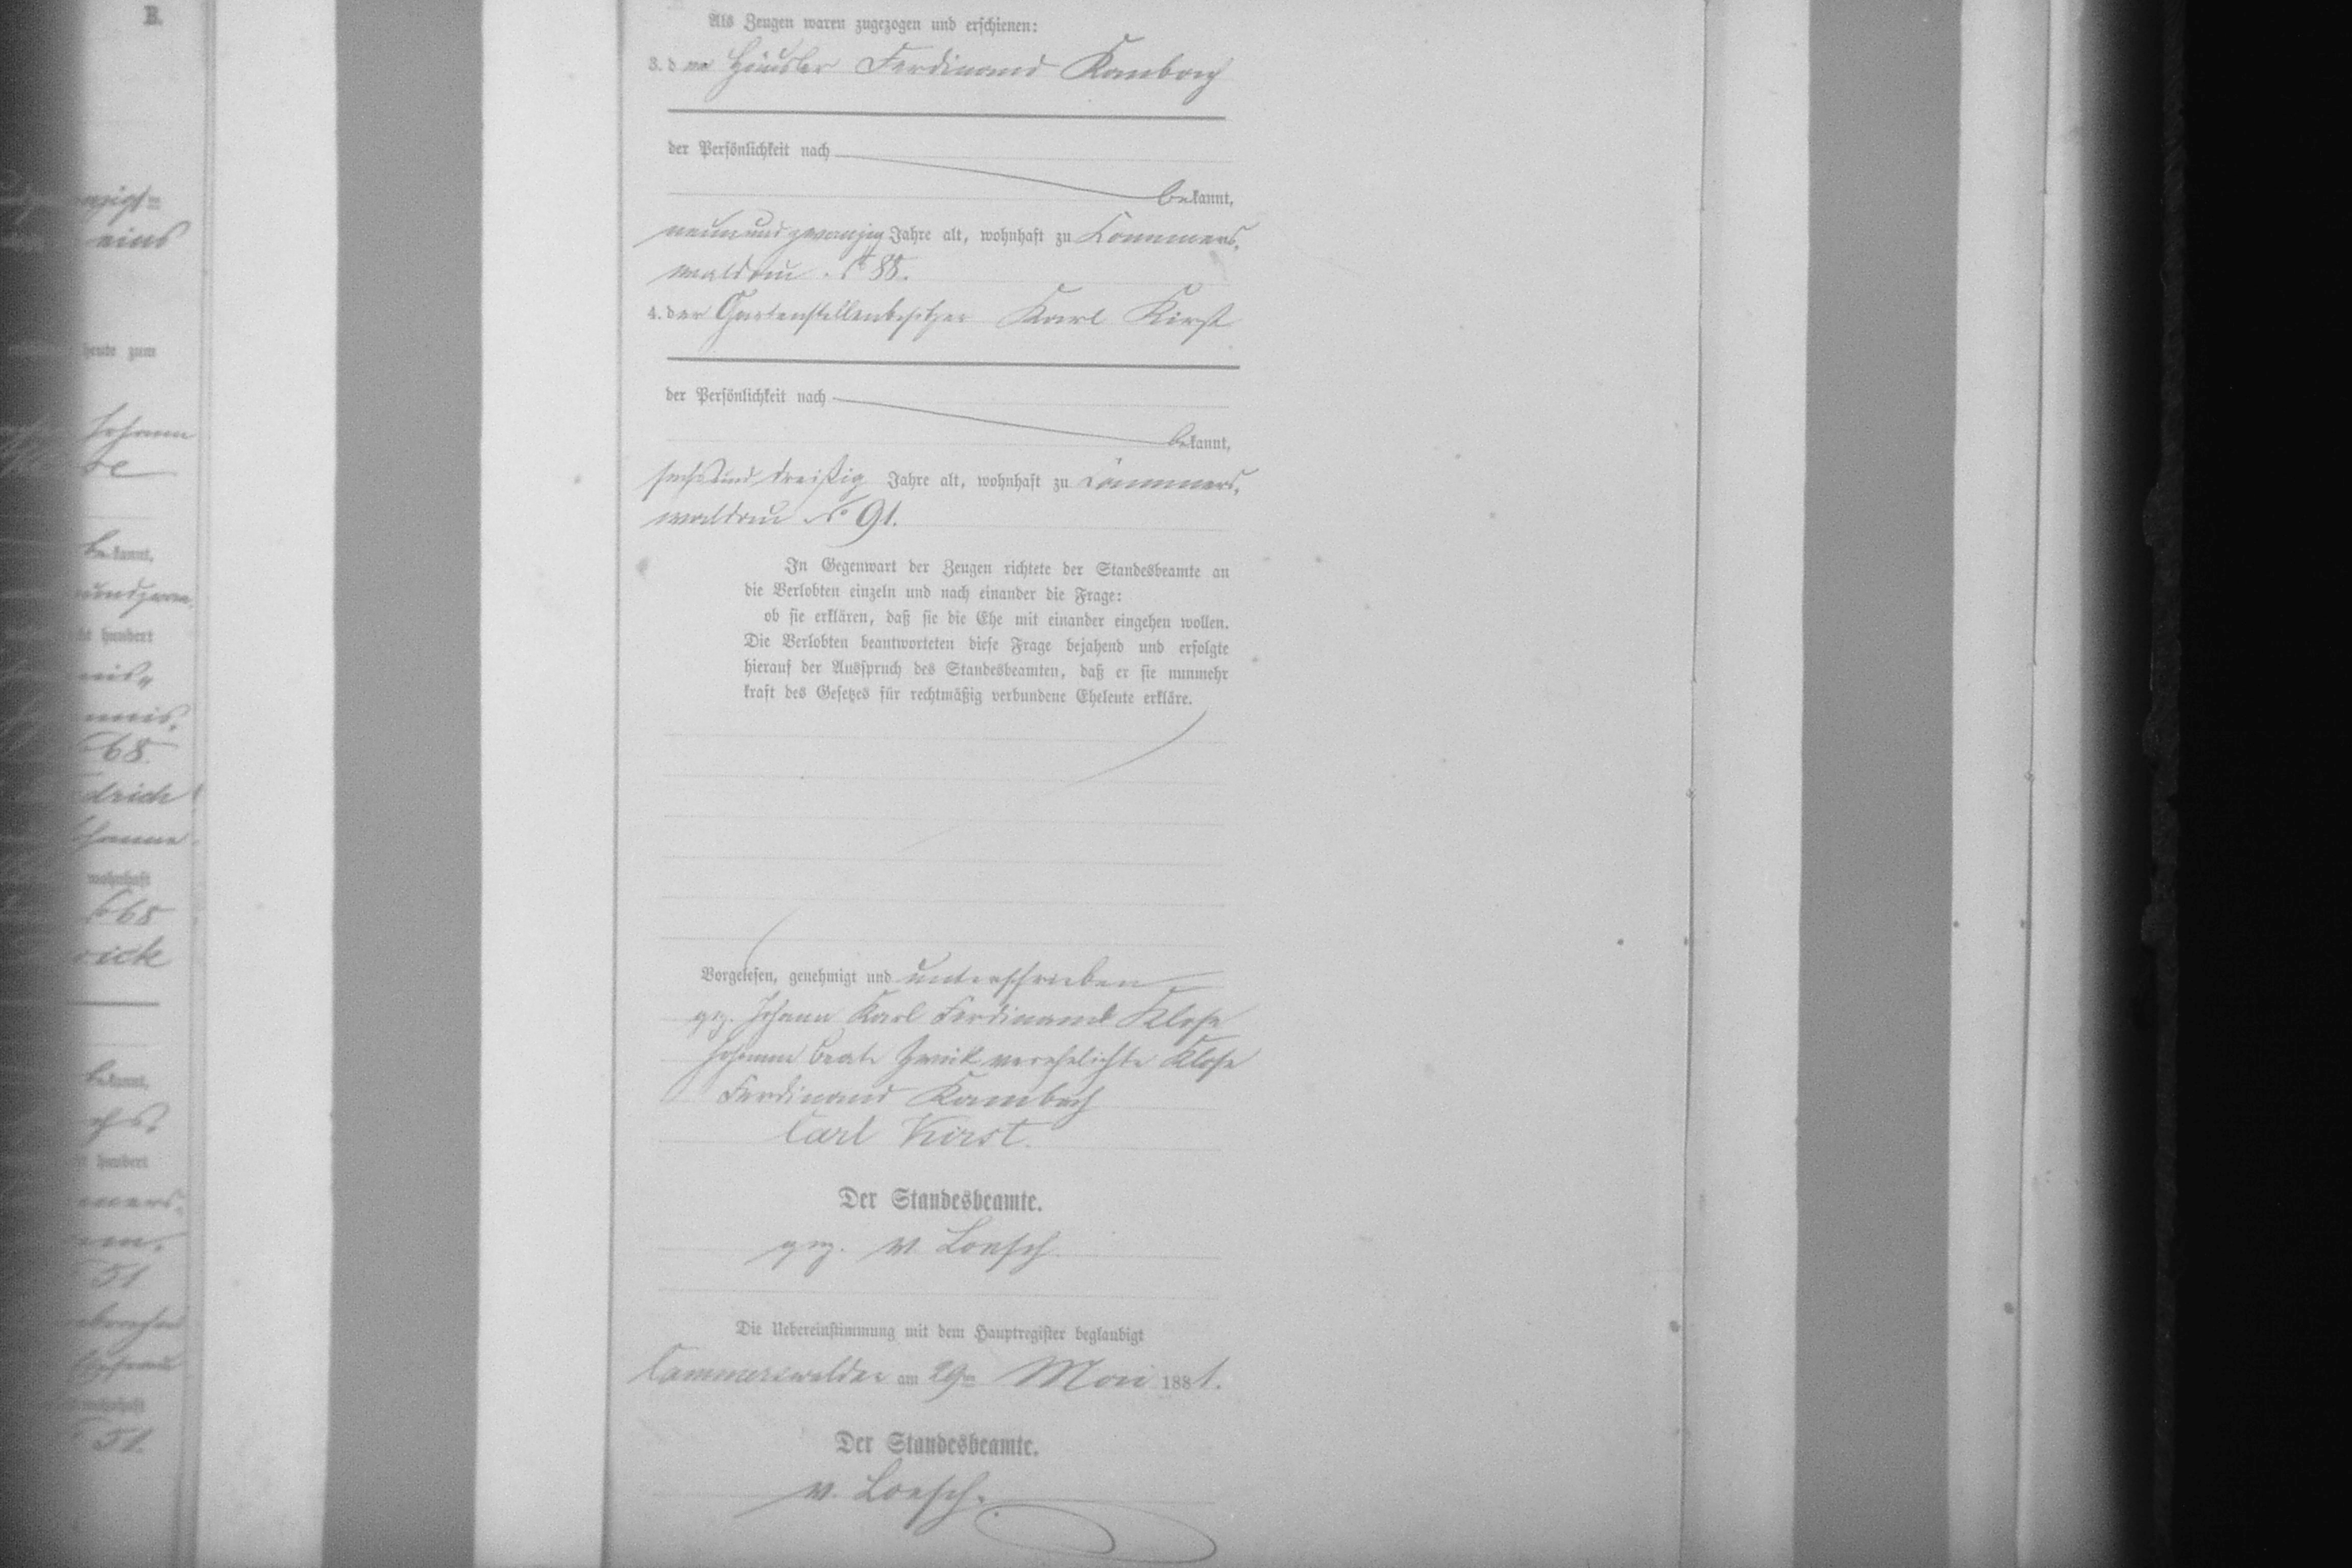 B.
eins
heute zum
Johann
bekannt,
hundert
68.
drich
wohnhaft
68
bekannt,
hundert
51
wohnhaft
51.
Als Zeugen waren zugezogen und erschienen:
3. der Häusler Ferdinand Kambach
der Persönlichkeit nach
bekannt,
neunundzwanzig Jahre alt, wohnhaft zu Cammers-
waldau No 88.
4. der Gartenstellenbesitzer Karl Kirst
der Persönlichkeit nach
bekannt,
sechsunddreißig Jahre alt, wohnhaft zu Cammers-
waldau No 91.
In Gegenwart der Zeugen richtete der Standesbeamte an
die Verlobten einzeln und nach einander die Frage:
ob sie erklären, daß sie die Ehe mit einander eingehen wollen.
Die Verlobten beantworteten diese Frage bejahend und erfolgte
hierauf der Ausspruch des Standesbeamten, daß er sie nunmehr
kraft des Gesetzes für rechtmäßig verbundene Eheleute erkläre.
Vorgelesen, genehmigt und unterschrieben
gez. Johann Karl Ferdinand Klose
Johanne Beate verehelichte Klose
Ferdinand Kambach
Carl Kirst.
Der Standesbeamte.
gez. v. Loesch
Die Uebereinstimmung mit dem Hauptregister beglaubigt
Cammerswaldau am 29ten Mai 1881.
Der Standesbeamte.
v. Loesch.